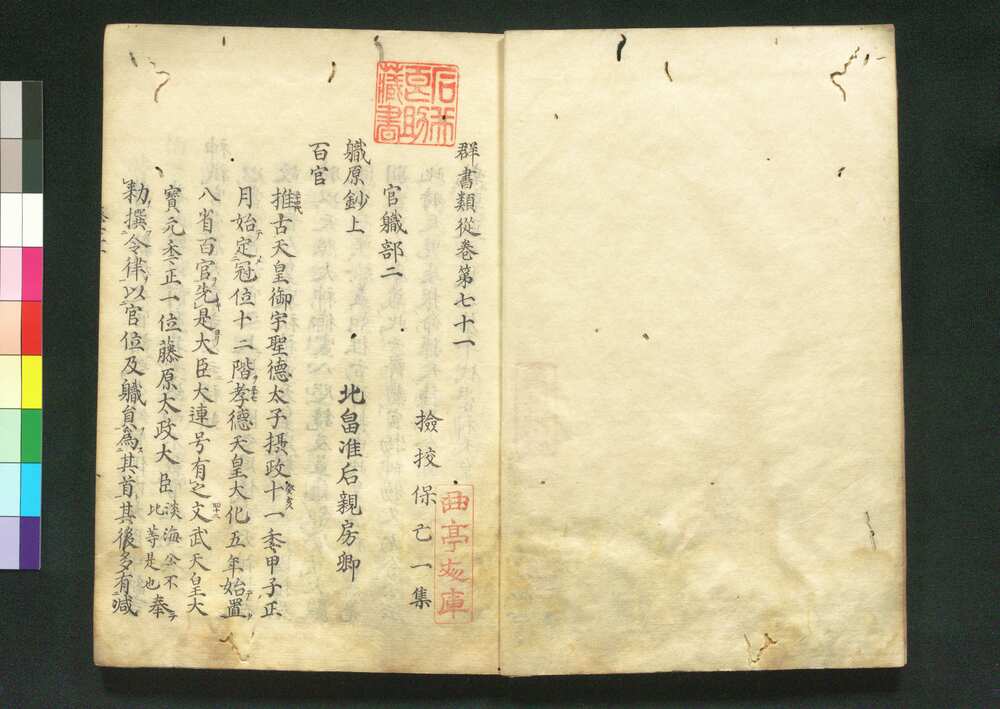 群書類從巻第七十一
撿挍保己一集
官軄部二
軄原鈔上
北畠准后親房卿
百官
推古天皇御宇聖德太子摂政十一秊甲子正
癸亥
月始定冠位十二階孝德天皇大化五年始置
八省百官先是大臣大連号有之文武天皇大
四十二
寳元秊正一位藤原太政大臣淡海公不比等是也奉
勅撰令律以官位及軄負為其首其後多有減
石川
邑助
藏書
曲亭
文庫